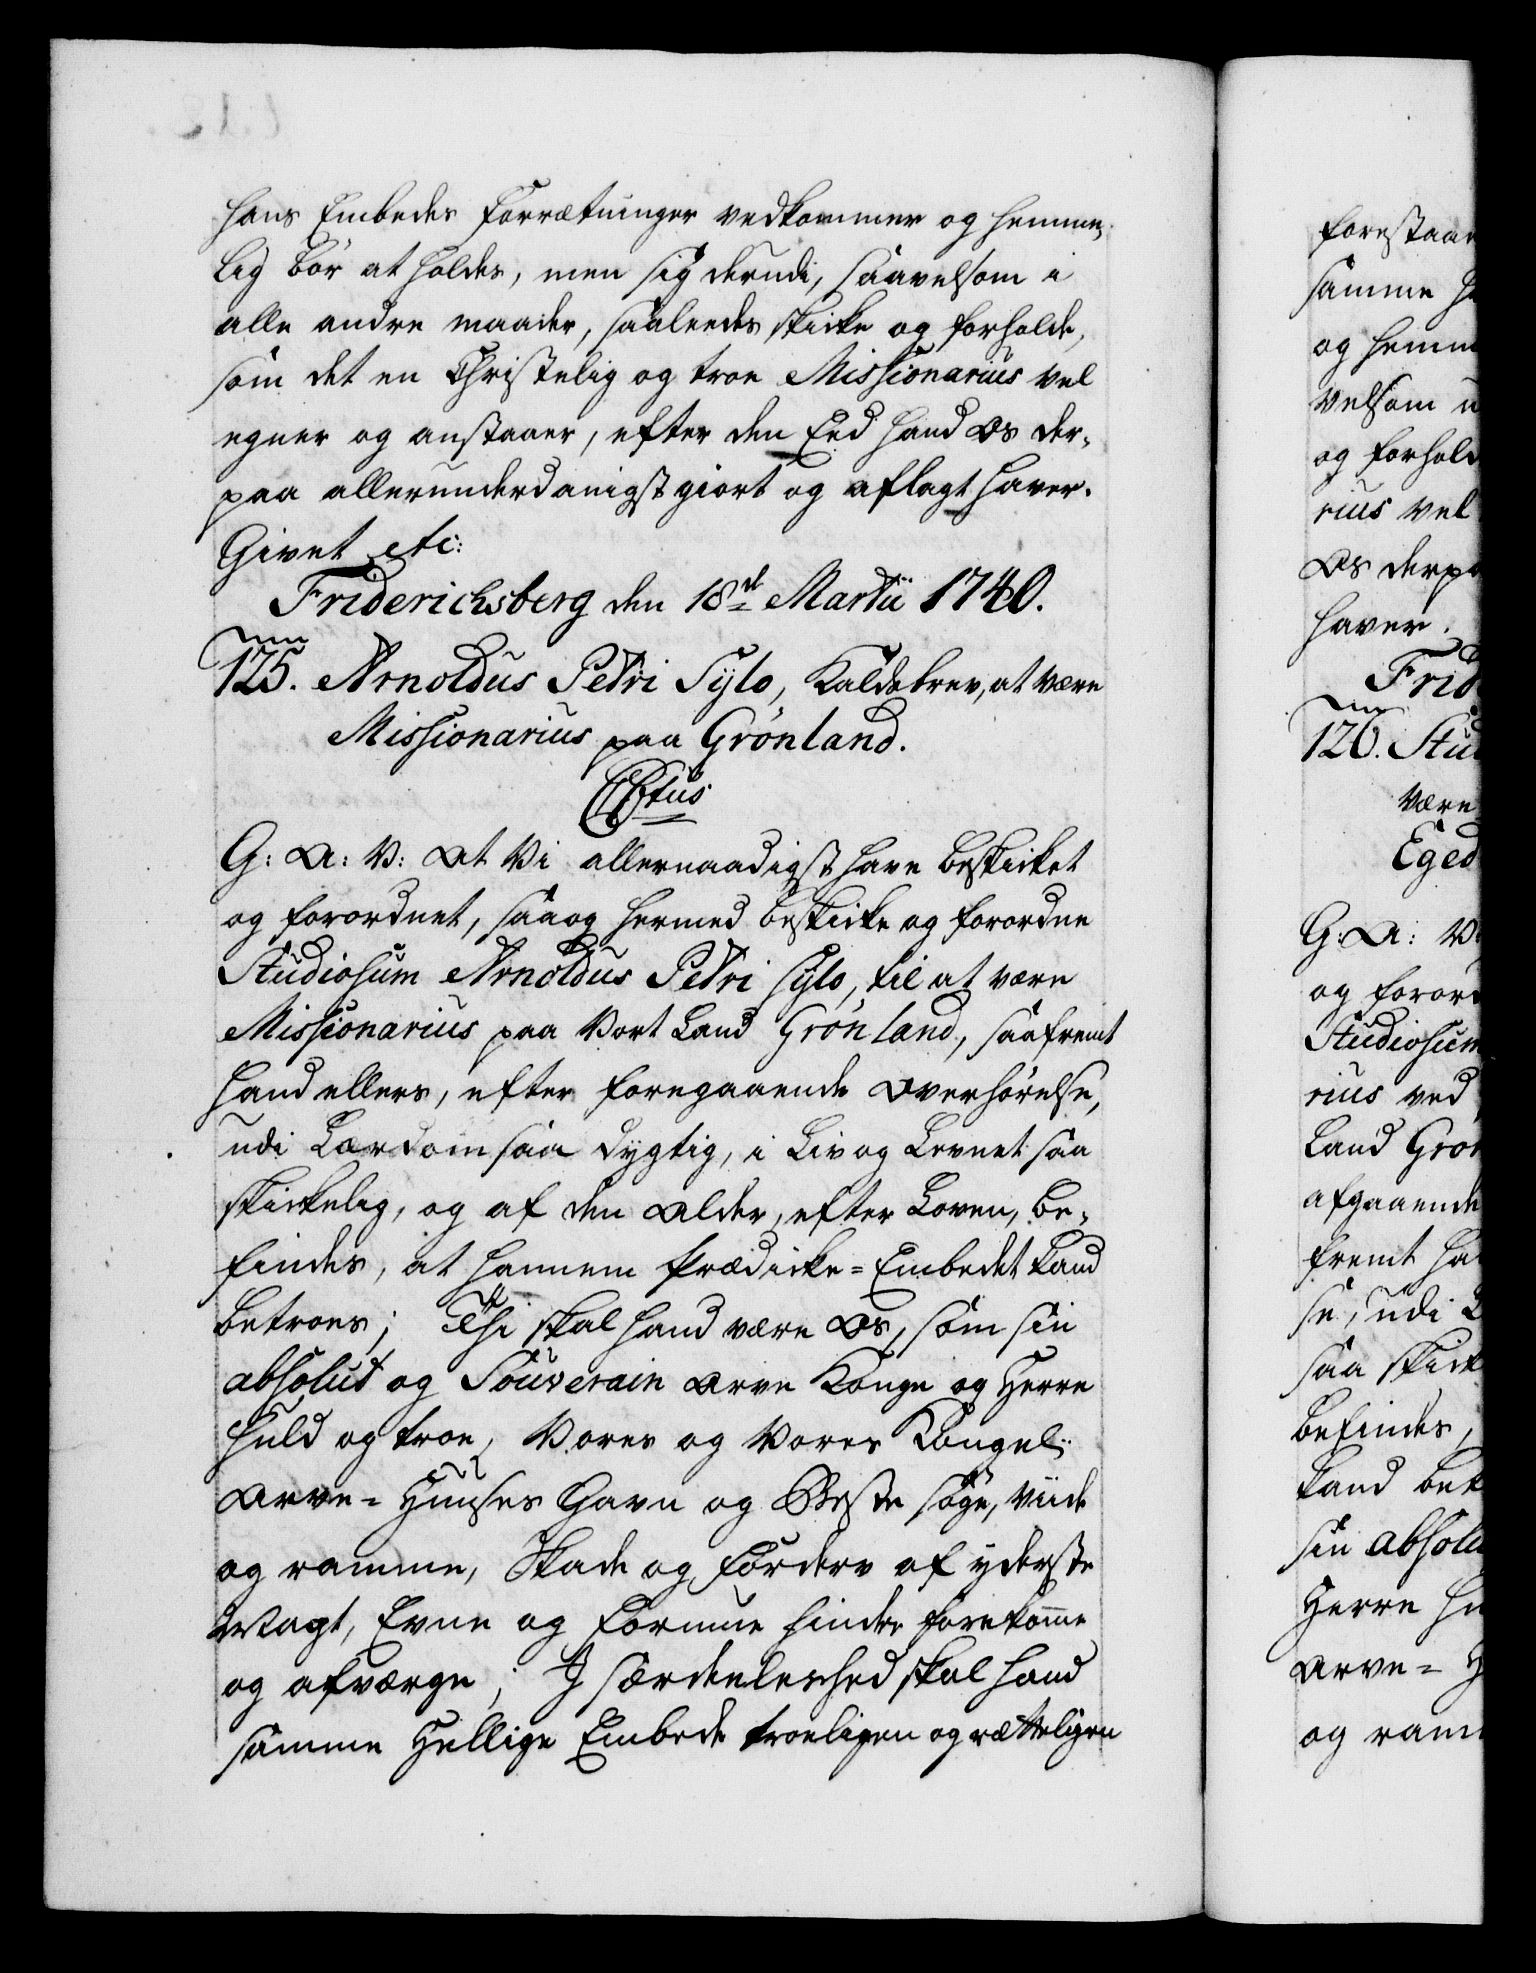 hans Embedes Forrætninger vedkommer og hemme¬
lig bör at holdes, men sig derudi, saavelsom i
alle andre maader, saaleedes skicke og forholde,
som det en Christelig og troe Missionarius vel
egner og anstaaer, efter den Eed hand Os der¬
paa allerunderdanigst giort og aflagt haver.
Givet etc:
Friderichsberg den 18de Martii 1740.
125. Arnoldus Petri Sylo, Kaldsbrev, at være
Missionarius paa Grönland.
G: A: V: At Vi allernaadigst have beskicket
og forordnet, saa og hermed beskicke og forordne
Studiosum Arnoldus Petri Sylo, til at være
Missionarius paa Vort Land Grönland, saafremt
hand ellers, efter foregaaende Overhörelse,
udi Lærdom saa dygtig, i Liv og Levnet saa
skickelig, og af den Alder, efter Loven, be¬
findes, at hannem Prædicke-Embedet kand
betroes; Thi skal hand være Os, som sin
absolut og Souverain Arve Konge og Herre
huld og troe, Vores og Vores Kongel:
Arve-Huuses Gavn og Beste söge, viide
og ramme, Skade og Forderv af yderste
Magt, Evne og Formue hindre forekomme
og afværge; I særdeeleshed skal hand
samme Hellige Embede troeligen og rætteligen
forestaae
samme h
og hemm
velsom u
og forhold
rius vel
Os derpa
haver.
Frid
126. Stu
være
Eged
G: A: V
og foror
Studiosum
rius ved
Land Grön
afgaaende
fremt ha
se, udi L
saa skick
befindes,
kand bet
sin absolu
Herre hu
Arve- H
og ram